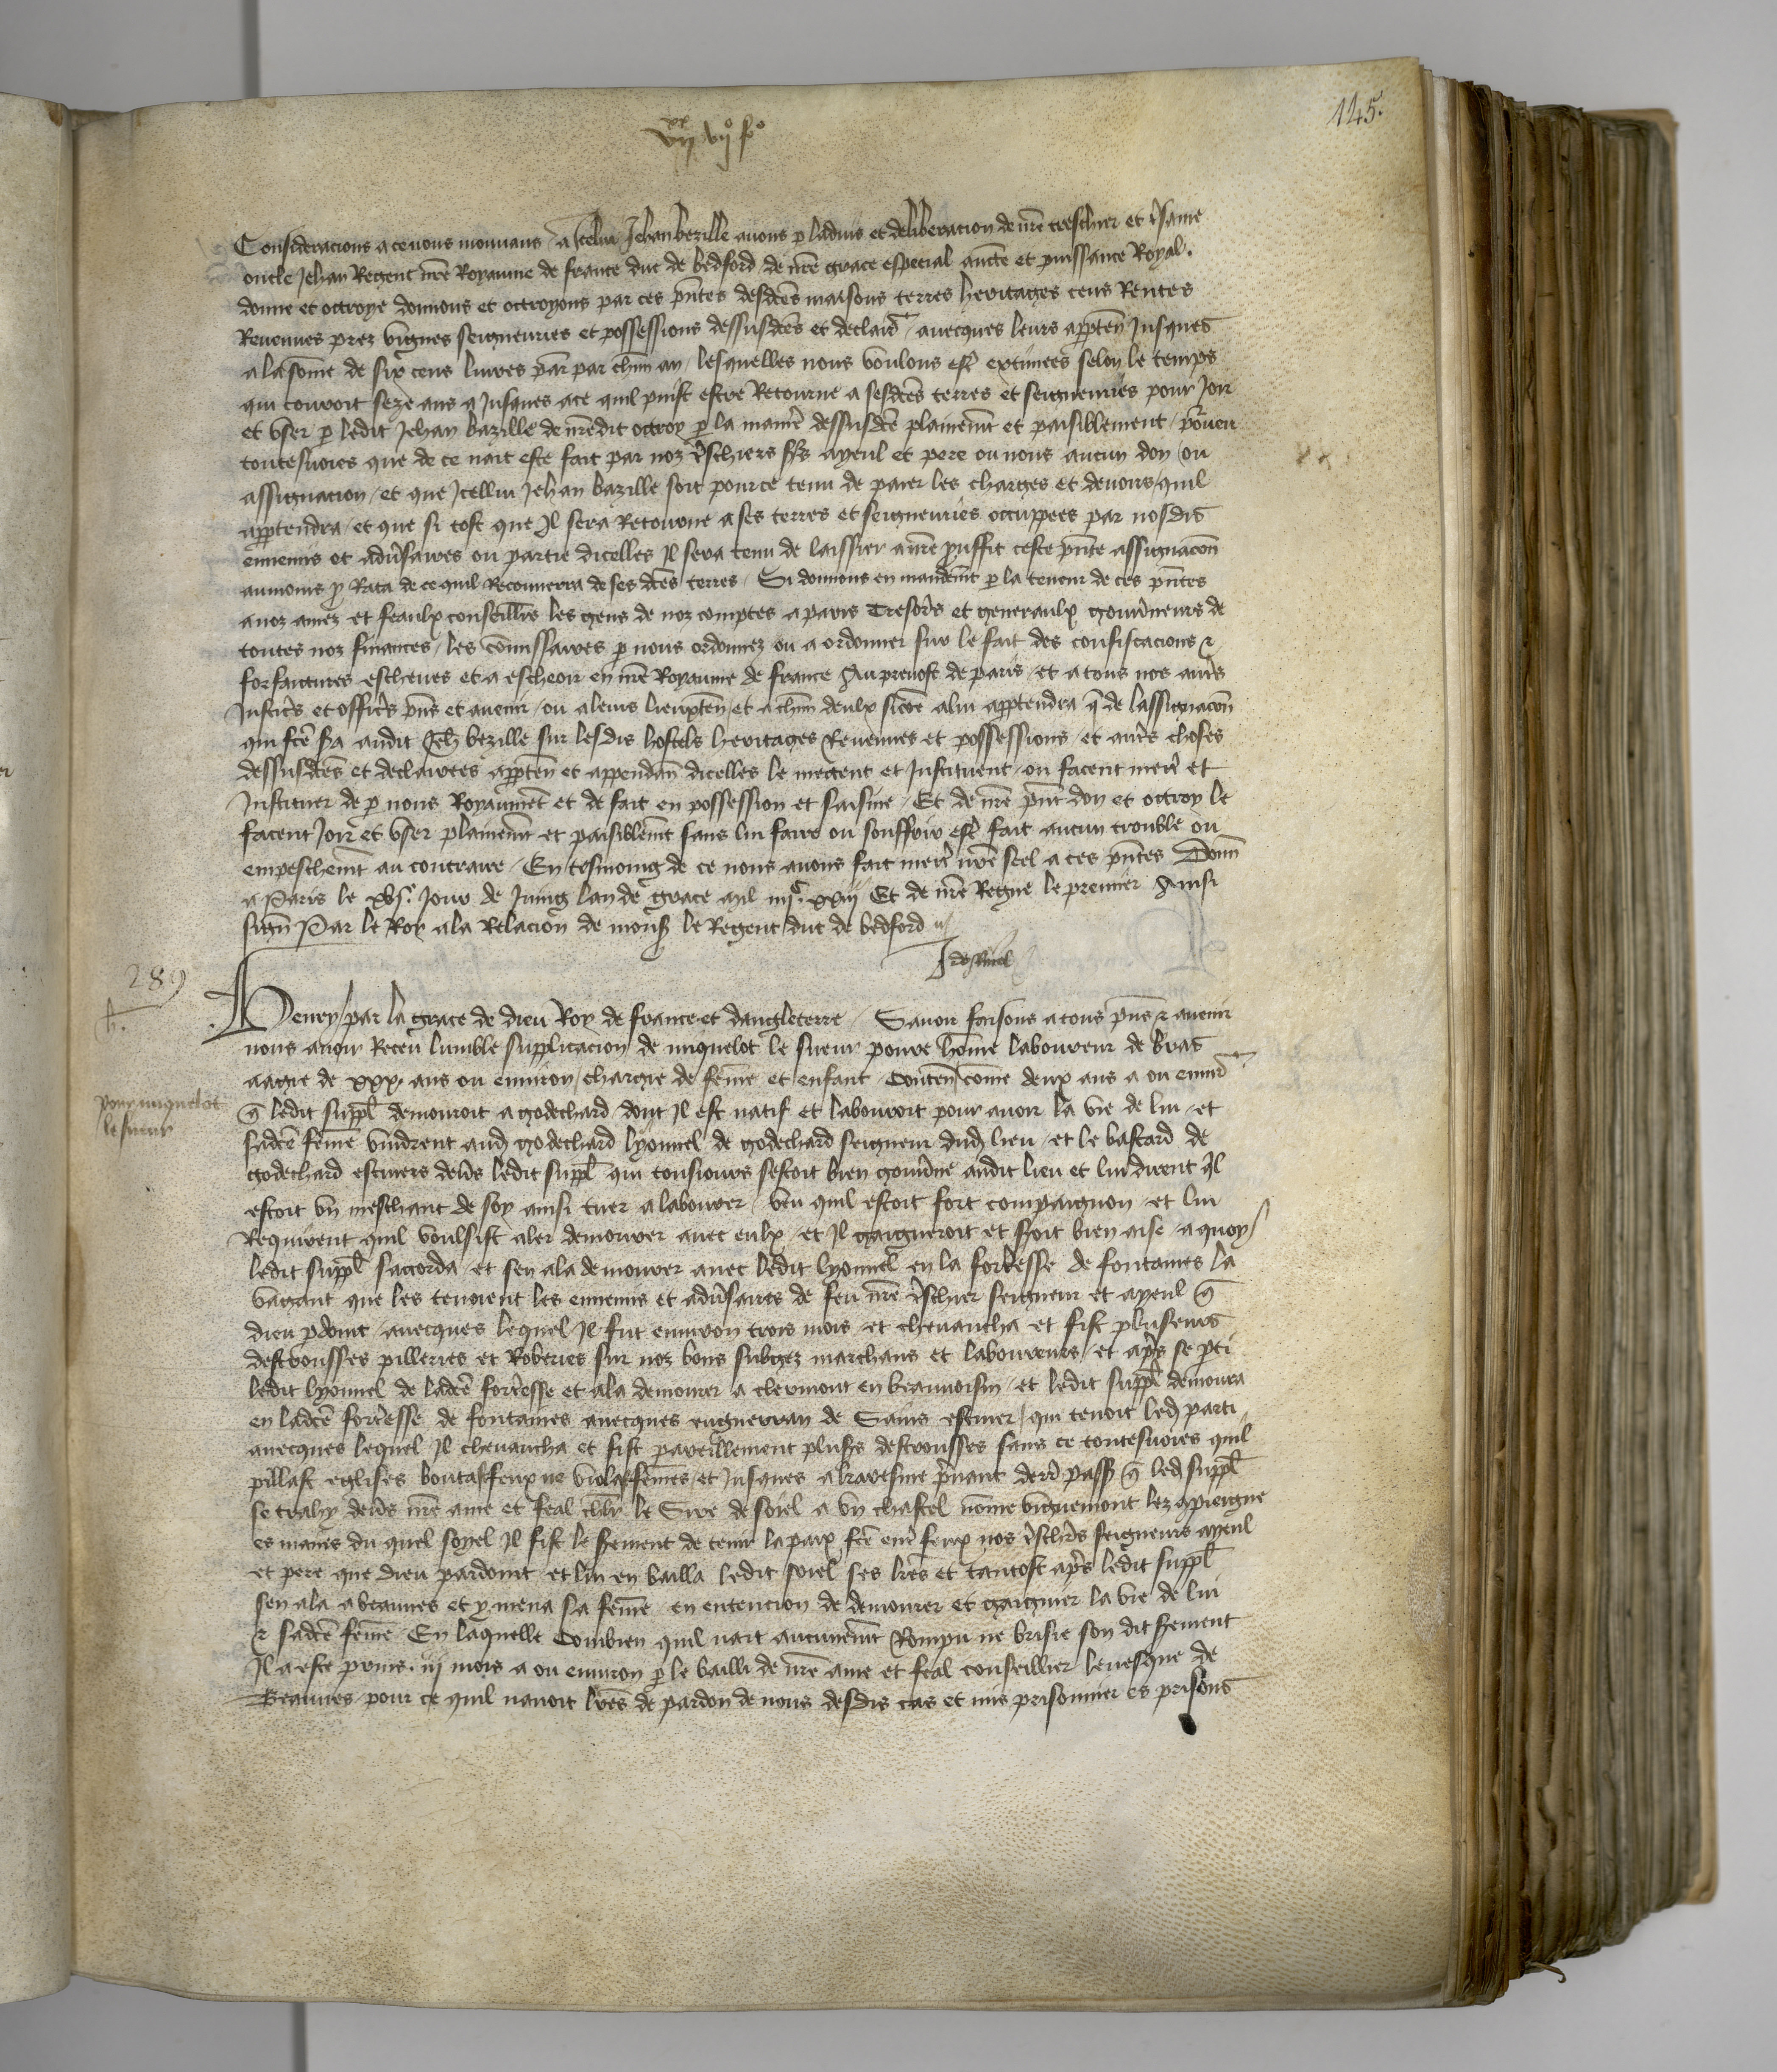 145.
vii xx vii o f o
Consideracions a ce nous mouvans a icelui Jehan bezille avons p ladvis et deliberacion de nre treschier et tsame
oncle Jehan Regent nre Royaume de france duc de bedford de nre grace especial aucte et puissance Royal.
donne et octroye donnons et octroyons par ces pntes desdces maisons terres heritages cens Rentes
Revenues prez vignes seigneuries et possessions dessusdces et declair avecques leurs apptenn Jusques
a la some de six cens livres par par chun an / lesquelles nous voulons estr extimees selon le temps
qui couroit seze ans a Jusques ace quil puist estre Retourne a sesdces terres et seigneuries pour Joir
et user p ledit Jehan bazille de nredit octroy p la manre dessusdce plainemt et paisiblement / pourveu
toutesvoies que de ce nait este fait par noz tschiers srs ayeul et pere ou nous aucun don ou
assignacion / et que Icellui Jehan bazille soit pource tenu de paier les charges et devoirs quil
apptendra / et que si tost que Il sera Retourne a ses terres et seigneuries occuppees par nosdis
ennemis et advsaires ou partie dicelles Il sera tenu de laissier a nre prouffit ceste pnte assignacon
aumoins p Rata de ce quil Recouvrera de ses dces terres / Si donnons en mandemt p la teneur de ces pntes
a noz amez et feaulx conseillrs les gens de noz comptes a paris Tresors et generaulx gouvneurs de
toutes noz finances / les comissaires p nous ordonnez ou a ordonner sur le fait des confiscacions &
forfaictures escheues et a escheoir en nre Royaume de france Au prevost de paris / et a tous nos autrs
Justiciers et officrs pns et avenir / ou a leurs lieuxtenn et a chun deulx sicoe a lui apptendra q de lassignacon
qui fce sa audit Jeh bezille sur lesdis hostels heritages Revenues et possessions / et autrs choses
dessusdces et declairees apptenn et appendan dicelles le mectent et Instituent / ou facent mectr et
Instituer de p nous Royaumet et de fait en possession et saisine / Et de nre pnt don et octroy le
facent Joir et user plainemt et paisiblemt sans lui faire ou souffrir estr fait aucun trouble ou
empeschemt au contraire / En tesmoing de ce nous avons fait mectr nre seel a ces pntes Donn
a Paris le xvie Jour de Juing lan de grace mil iiiic xxiii Et de nre Regne le premier Ainsi
sign Par le Roy a la Relacion de mons le Regent duc de bedford
289
Henry par la grace de dieu Roy de france et dangleterre / Savoir faisons a tous pns & avenir
nous avoir Receu lumble supplicacion de miquelot le sueur povre home laboureur de bras
aagie de xxx ans ou environ / chargie de feme et enfant / Conten come deux ans a ou envir
pour miquelot
le sueur
q ledit suppl demouroit a godechard dont Il est natif et labouroit pour avoir la vie de lui / et
sadce feme vindrent aud godechard lyonnel de godechard seigneur dud lieu / et le bastard de
godechard escuiers devs ledit suppl qui tousiours sestoit bien gouvne audit lieu et lui dirent ql
estoit un meschant de soy ainsi tuer a labourer / veu quil estoit fort compaignon et lui
Requirent quil voulsist aler demourer avec eulx / et Il gaigneroit et sroit bien aise / a quoy
ledit suppl saccorda et sen ala demourer avec ledit lyonnel en la fortesse de fontaines la
vagant que les tenoient les ennemis et advsaires de feu nre tschier seigneur et ayeul q
dieu pdoint / avecques lequel Il fut environ trois mois et chevaucha et fist plusieurs
destrousses pilleries et Roberies sur noz bons subgez marchans et laboureurs / et aprs se pti
ledit lyonnel de ladce fortresse et ala demourer a clermont en beauvoisin / et ledit suppl demoura
en ladce fortresse de fontaines avecques enguerran de Sains escuier qui tenoit led parti
avecques lequel Il chevaucha et fist pareillement plusrs destrousses sans ce toutesvoies quil
pillast eglises boutast feux ne violast femes / et Jusques a karesme pnant derr pass q led suppl
se trahy devs nre ame et feal chlr le Sire de soiel a un chastel nome viguemont lez cpieigne
es mains du quel soyel Il fist le srement de tenir la paix fce entr feux nos tschrs seigneurs ayeul
et pere que dieu pardoint et lui en bailla ledit soiel ses lres et tantost aprs ledit suppl
sen ala a beauves et y mena sa feme / en entencion de demourer et gaignier la vie de lui
& sadce feme / En laquelle Combien quil nait aucunemt Rompu ne brisie son dit srement
Il a este prins . iii mois a ou environ p le bailli de nre ame et feal conseillier levesque de
Beauves / pour ce quil navoit lres de pardon de nous desdis cas et mis prisonnier es prisons